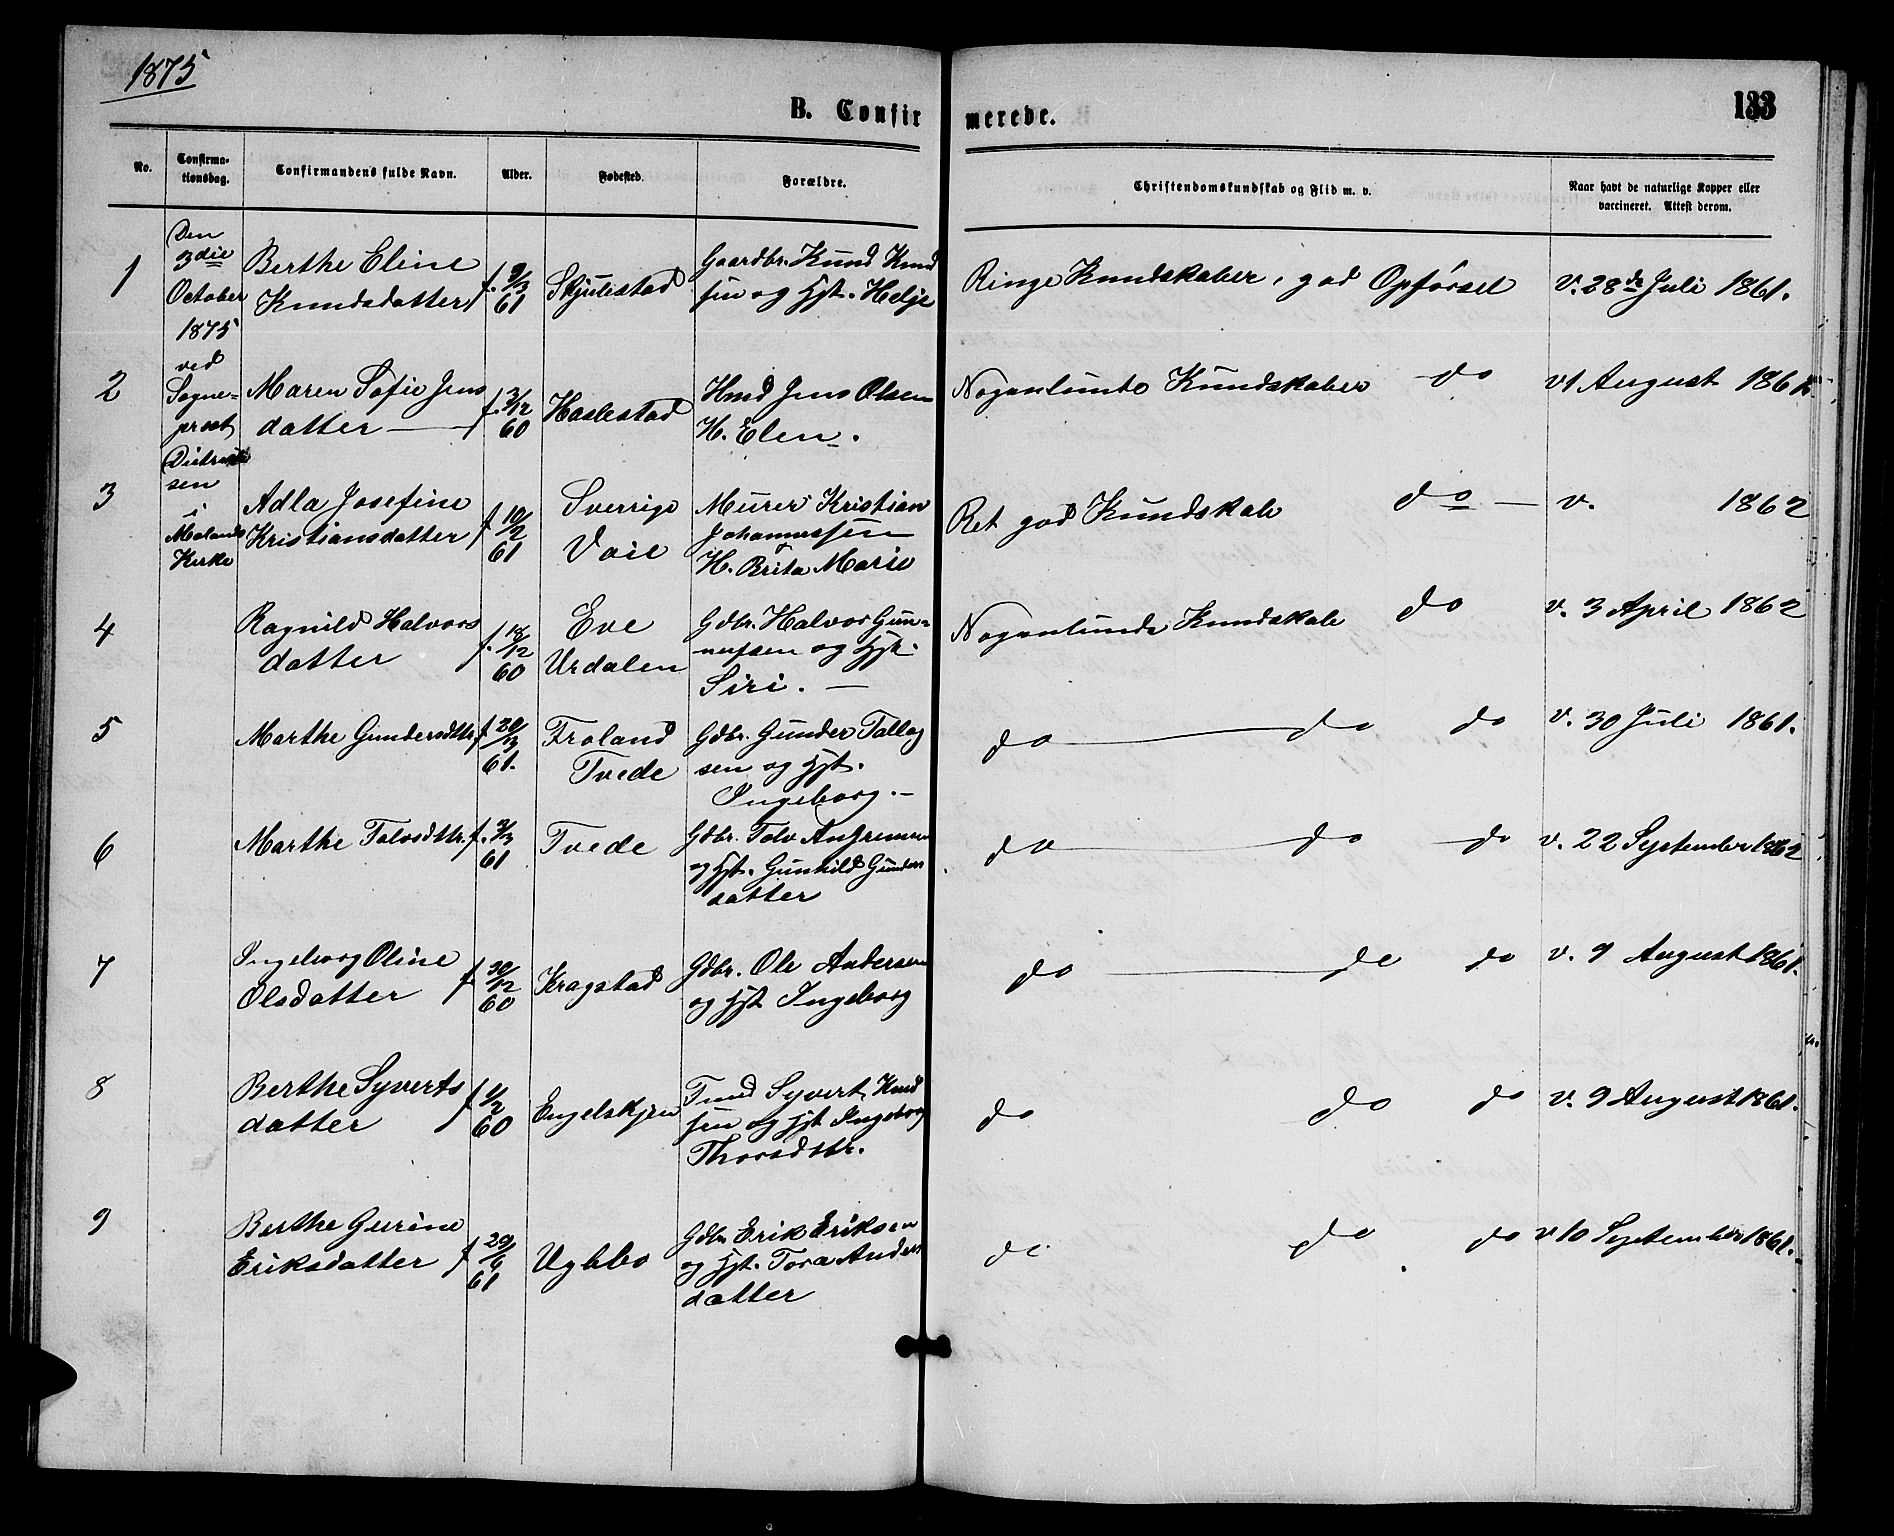 1875
B. Confirmerede.
133
No.
Confirmationsdag.
Confirmandens fulde Navn.
Alder.
Fødested.
Forældre.
Christendomskundskab og Flid m. v.
Naar havt de naturlige Kopper eller
vaccineret. Attest derom.
Den
3die
October
1875
ved
Sogne-
prest
sen
i
Molands
Kirke
1
Berthe Eline
Knudsdatter
f. 9/3
61
Skjulestad
Gaardbr. Knud Knud
sen og Hst. Helje
Ringe Kundskaber, god Opførsel
v. 28de Juli 1861.
2
Maren Sofie Jens
datter
f. 3/12
60
Haslestad
Hmd Jens Olsen
H. Elen.
Nogenlunde Kundskaber do
v 1 August
3
Adla Josefine
Kristiansdatter
f. 10/2
61
Sverrige
Vaie
Murer Kristian
Johannessen
H. Brita Marie
Ret god Kundskab do
v. 1862
4
Ragnild Halvors
datter
f. 18/12
60
Eve
Urdalen
Gdbr. Halvor Gun-
nufsen og Hst.
Siri.
Nogenlunde Kundskab do
v. 3 April 1862
5
Marthe Gundersdttr.
61.
Froland
Tvede
Gdbr. Gunder Tallag
sen og Hst.
Ingeborg.
do do do
v. 30 Juli 1861.
6
Marthe Talvsdttr.
61
Tvede
Gdbr. Talv
og Hst. Gunhild Gunders
datter
do do do
v. 22 September 1862
7
Ingeborg Oline
Olsdatter
f. 30/12
60
Kragstad
Gdbr. Ole Andersen
og Hst Ingeborg
do do do
v. 9 August 1861.
8
Berthe Syverts
datter
f. 1/2
60
Engelskjen
Syvert Knud
sen og Hst Ingeborg
Thorsdttr.
do do do
v. 9 August 1861.
9
Berthe Gurine
Eriksdatter
61
Uglebo
Gdbr Erik Eriksen
og Hst. Tora Anders
datter
do do do
v 10 September 1861.